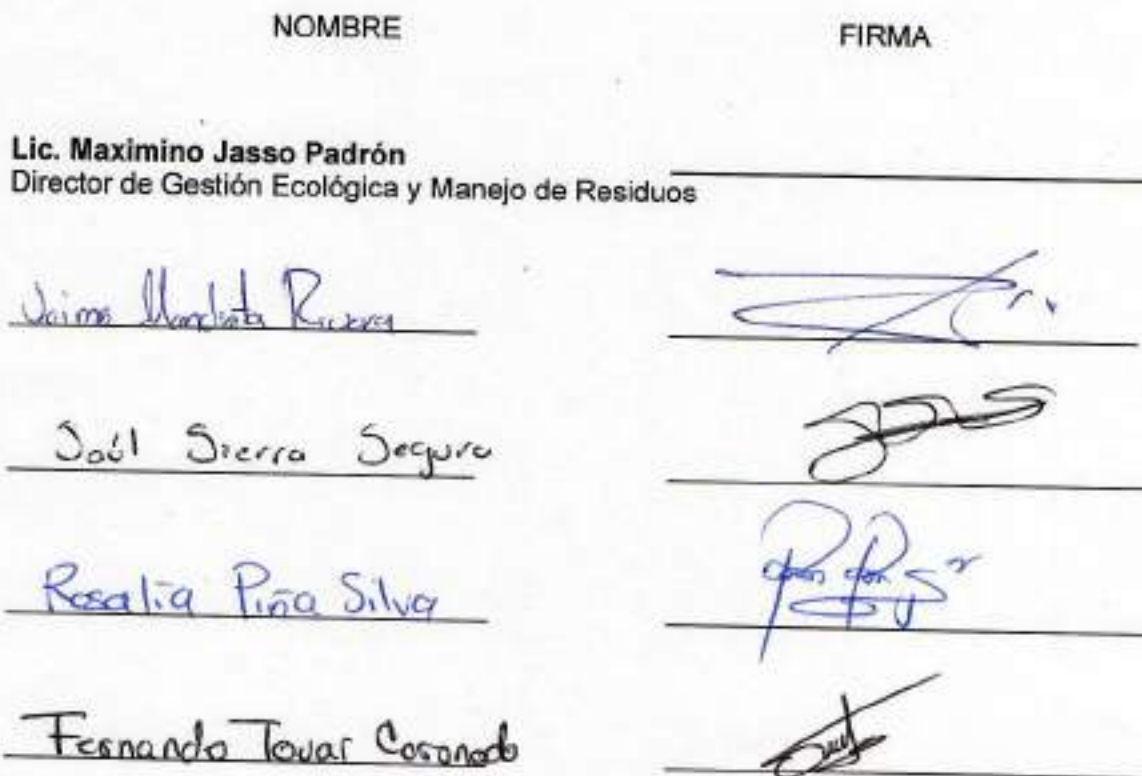 NOMBRE FIRMA
Lic. Maximino Jasso Padrón
Director de Gestión Ecológica y Manejo de Residuos
Jaime Rivera
Saúl Sierra Segura
Rosalía Piña Silva
Fernando Tovar Coronado